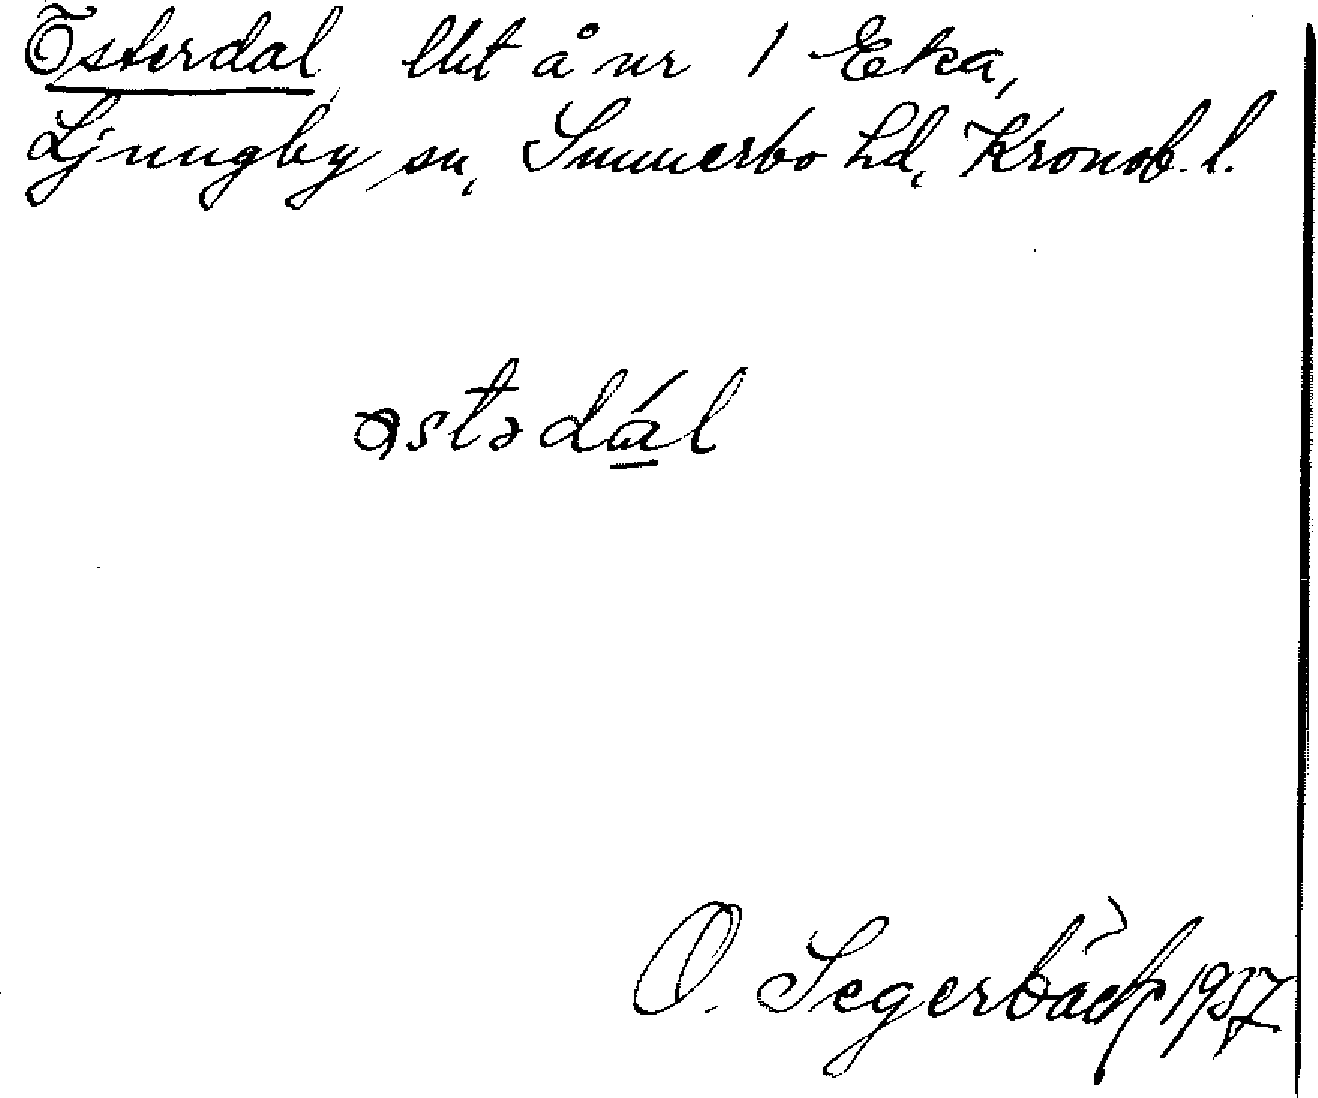 Österdal, lht å nr 1 Eka,
Ljungby sn, Sunnerbo hd, Kronob. l.
østədál
O. Segerbäck 1957